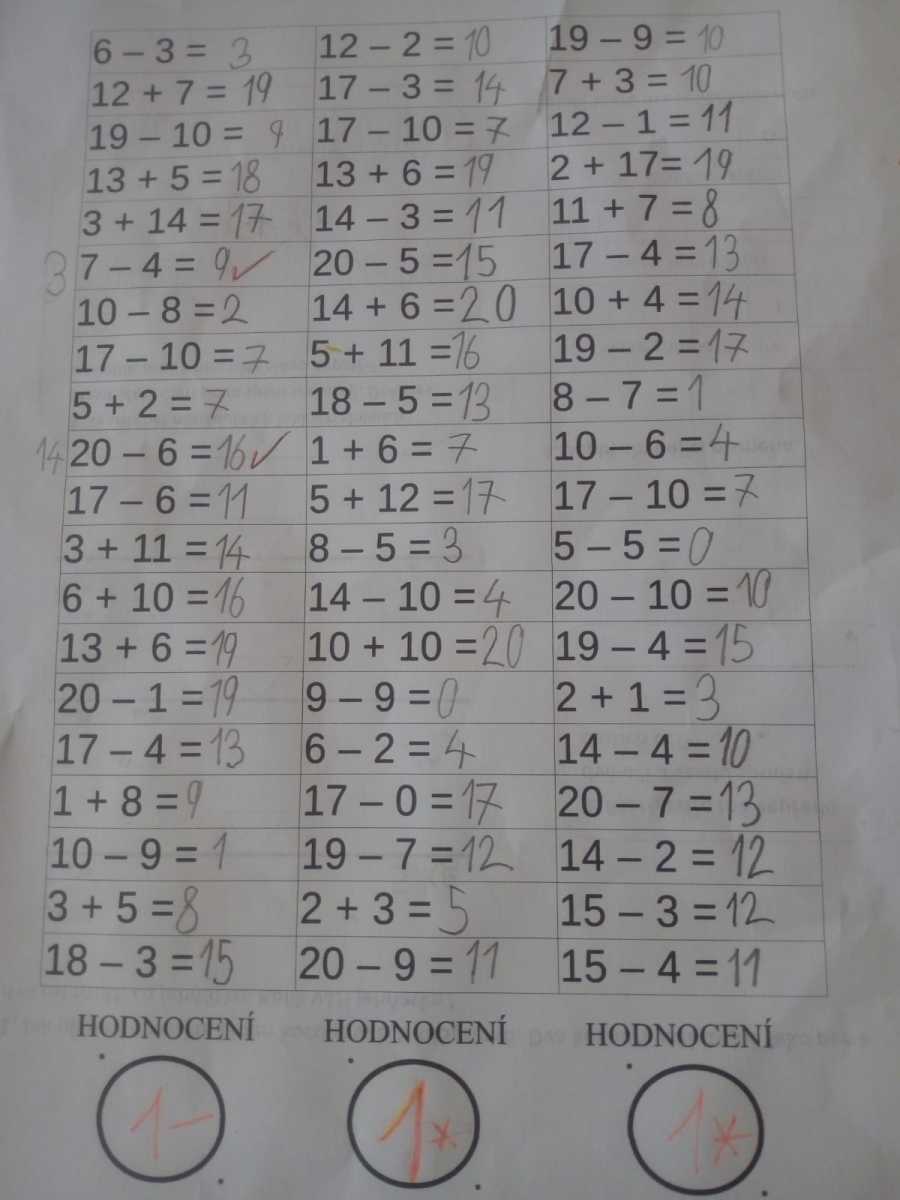 6 – 3 = 3 12 – 2 = 10 19 – 9 = 10
12 + 7 = 19 17 – 3 = 14 7 + 3 = 10
19 – 10 = 9 17 – 10 = 7 12 – 1 = 11
13 + 5 = 18 13 + 6 = 19 2 + 17= 19
3 + 14 = 17 14 – 3 = 11 11 + 7 = 8
3 7 – 4 = 9 ✓ 20 – 5 = 15 17 – 4 = 13
10 – 8 = 2 14 + 6 = 20 10 + 4 = 14
17 – 10 = 7 5 + 11 = 16 19 – 2 = 17
5 + 2 = 7 18 – 5 = 13 8 – 7 = 1
14 20 – 6 = 16 ✓ 1 + 6 = 7 10 – 6 = 4
17 – 6 = 11 5 + 12 = 17 17 – 10 = 7
3 + 11 = 14 8 – 5 = 3 5 – 5 = 0
6 + 10 = 16 14 – 10 = 4 20 – 10 = 10
13 + 6 = 19 10 + 10 = 20 19 – 4 = 15
20 – 1 = 19 9 – 9 = 0 2 + 1 = 3
17 – 4 = 13 6 – 2 = 4 14 – 4 = 10
1 + 8 = 9 17 – 0 = 17 20 – 7 = 13
10 – 9 = 1 19 – 7 = 12 14 – 2 = 12
3 + 5 = 8 2 + 3 = 5 15 – 3 = 12
18 – 3 = 15 20 – 9 = 11 15 – 4 = 11
HODNOCENÍ HODNOCENÍ HODNOCENÍ
1– 1* 1*